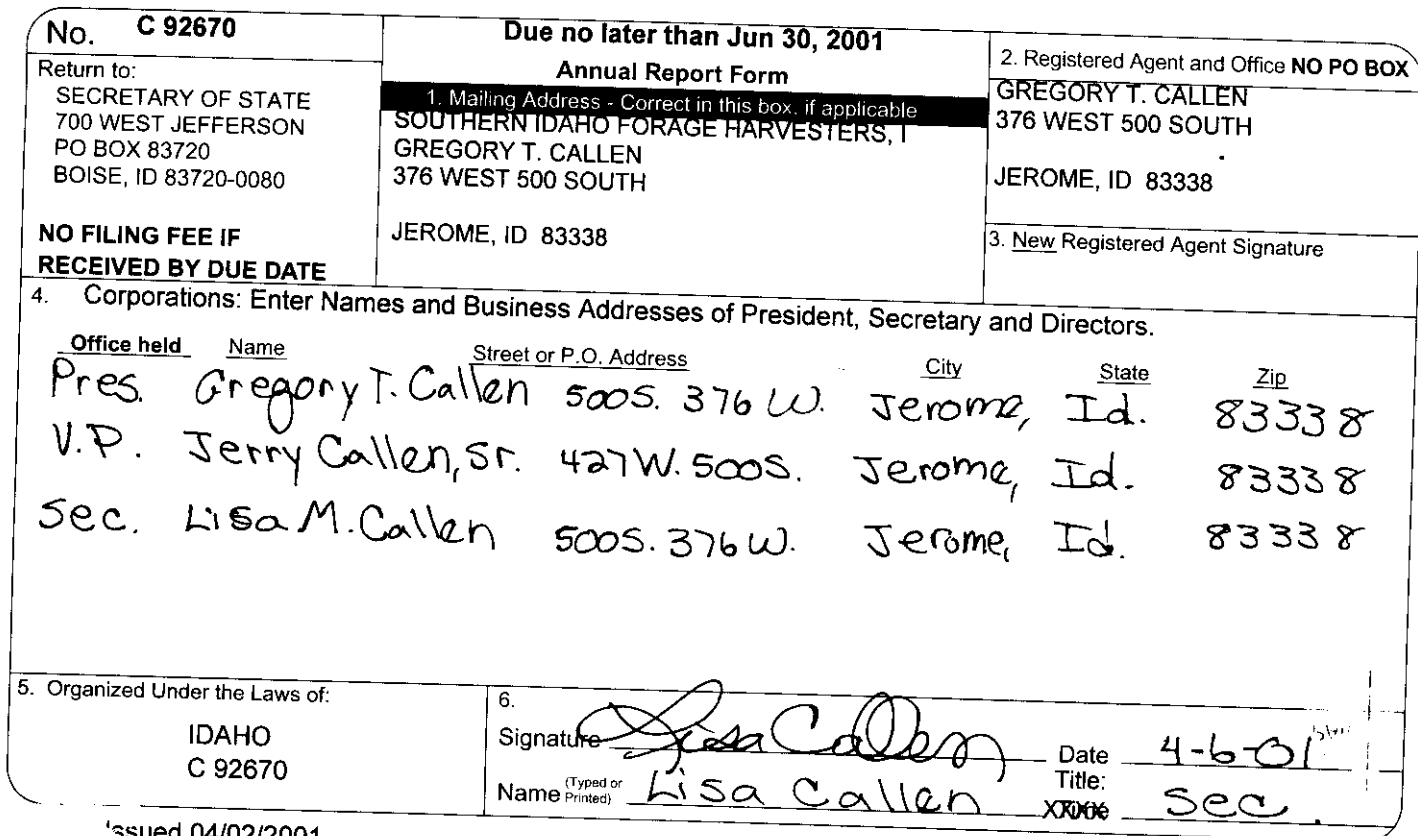 No. C 92670
Return to:
SECRETARY OF STATE
700 WEST JEFFERSON
PO BOX 83720
BOISE, ID 83720-0080
NO FILING FEE IF
RECEIVED BY DUE DATE
Due no later than Jun 30, 2001
Annual Report Form
1. Mailing Address - Correct in this box, if applicable
SOUTHERN IDAHO FORAGE HARVESTERS, I
GREGORY T. CALLEN
376 WEST 500 SOUTH
JEROME, ID 83338
2. Registered Agent and Office NO PO BOX
GREGORY T. CALLEN
376 WEST 500 SOUTH
JEROME, ID 83338
3. New Registered Agent Signature
4. Corporations: Enter Names and Business Addresses of President, Secretary and Directors.
Office held Name Street or P.O. Address City State Zip
Pres. Gregory T. Callen 500S. 376 W. Jerome, Id. 83338
V.P. Jerry Callen, Sr. 427 W. 500S. Jerome, Id. 83338
Sec. Lisa M. Callen 500S. 376 W. Jerome, Id. 83338
5. Organized Under the Laws of:
IDAHO
C 92670
6.
Signature Lisa Callen Date 4-6-01
Name (Typed or Printed) Lisa Callen Title: Sec.
Issued 04/02/2001